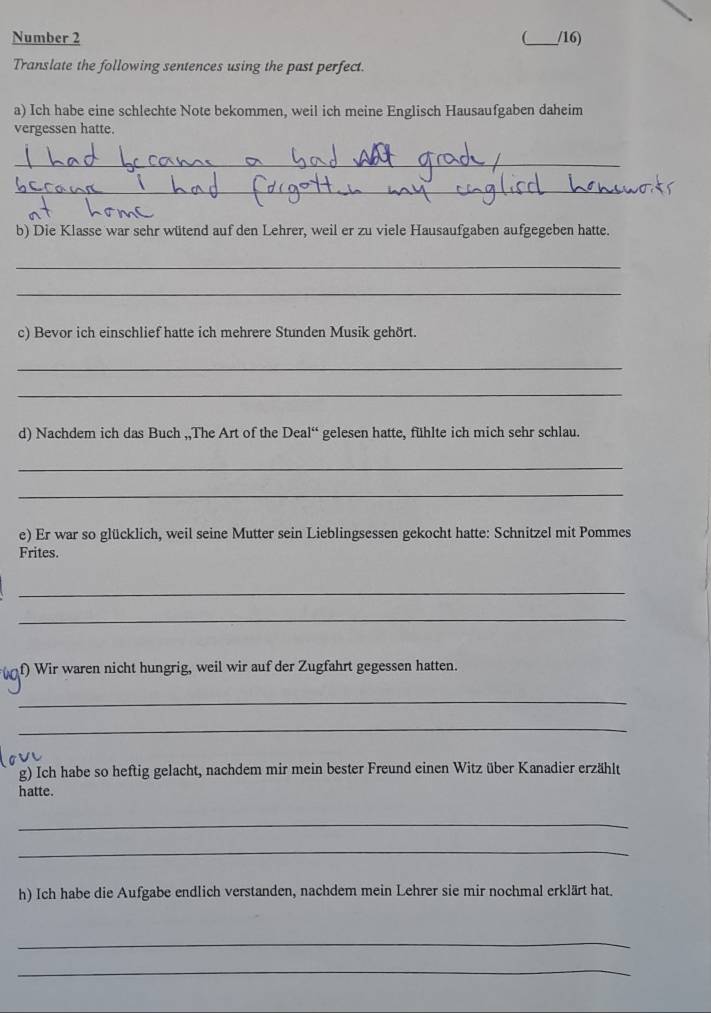 Number 2 (____/16)
Translate the following sentences using the past perfect.
a) Ich habe eine schlechte Note bekommen, weil ich meine Englisch Hausaufgaben daheim
vergessen hatte.
I had became a bad grade,
because I had forgotten my englisd homeworks
at home
b) Die Klasse war sehr wütend auf den Lehrer, weil er zu viele Hausaufgaben aufgegeben hatte.
c) Bevor ich einschlief hatte ich mehrere Stunden Musik gehört.
d) Nachdem ich das Buch „The Art of the Deal“ gelesen hatte, fühlte ich mich sehr schlau.
e) Er war so glücklich, weil seine Mutter sein Lieblingsessen gekocht hatte: Schnitzel mit Pommes
Frites.
f) Wir waren nicht hungrig, weil wir auf der Zugfahrt gegessen hatten.
love
g) Ich habe so heftig gelacht, nachdem mir mein bester Freund einen Witz über Kanadier erzählt
hatte.
h) Ich habe die Aufgabe endlich verstanden, nachdem mein Lehrer sie mir nochmal erklärt hat.